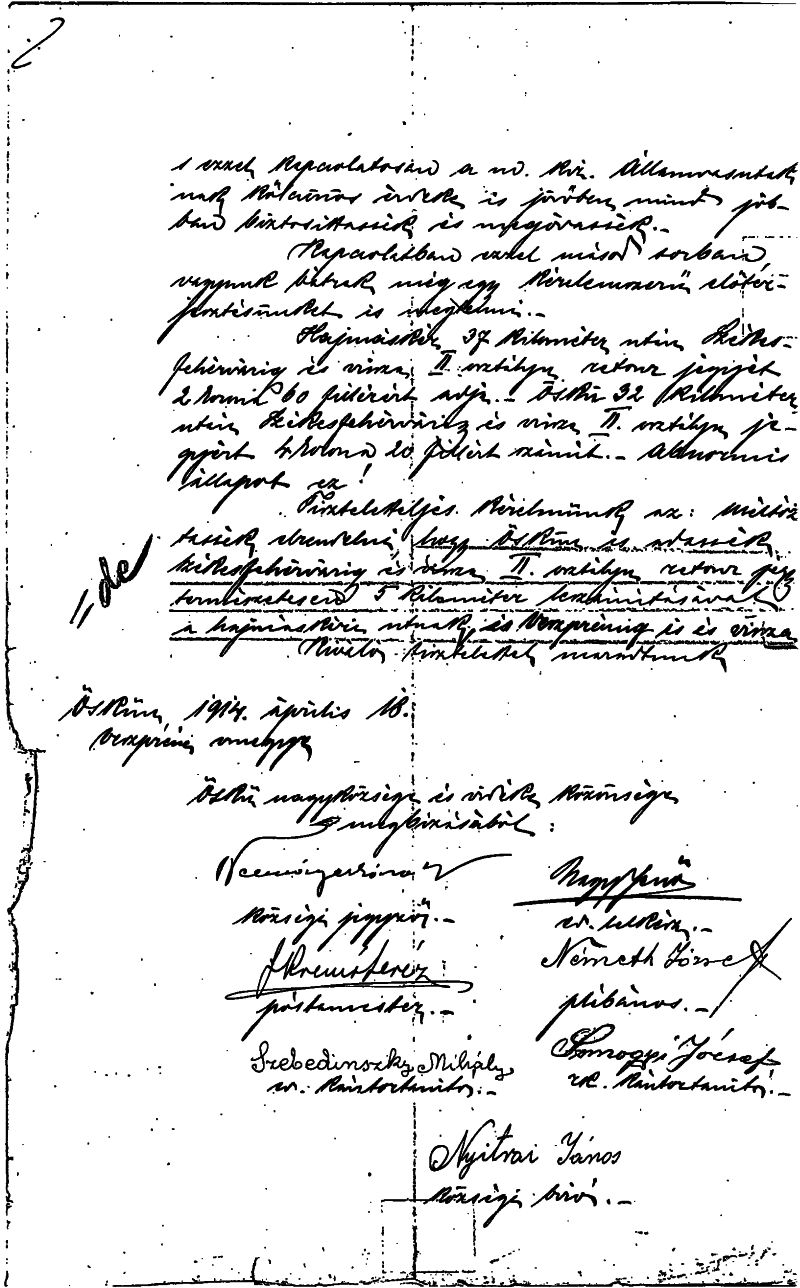 s ezzel kapcsolatosan a m. kir. Államvasutak
nak kölcsönös érdeke is jövőben mind job-
ban biztosittassék és megóvassék.-
Kapcsolatban ezzel másod sorban
vagyunk bátrak még egy kérelemszerű előter-
jesztésünket is megtenni.-
Hajmáskér 37 kilométer után Székes-
fehérvárig és vissza II osztályu retour jegyét
2 korona 60 fillérért adja.- Öskü 32 kilométer
után Székesfehérvárig és vissza II. osztályu je-
gyért 4 korona 20 fillért számit.- Abnormis
állapot ez!
Tiszteletteljes kérelmünk az: méltóz
tassék elrendelni, hogy Öskün is adassék
székesfehérvárig és vissza II. osztályu retour jegy
természetesen 5 kilométer leszámitásával
a hajmáskéri utnak, és Veszprémig is és vissza
=de
Kiváló tisztelettel maradtunk
Öskün, 1914. április 18.
Veszprém vmegye
Öskü nagyközsége és vidéke közönsége
megbizásából:
községi jegyző.-
Nagy Jenő
ev. lelkész.-
postamester.-
Németh József
plébános.-
Szebedinszky Mihály
ev. kántortanitó.-
Somogyi József
rk. kántortanitó.-
Nyitrai János
községi biró.-